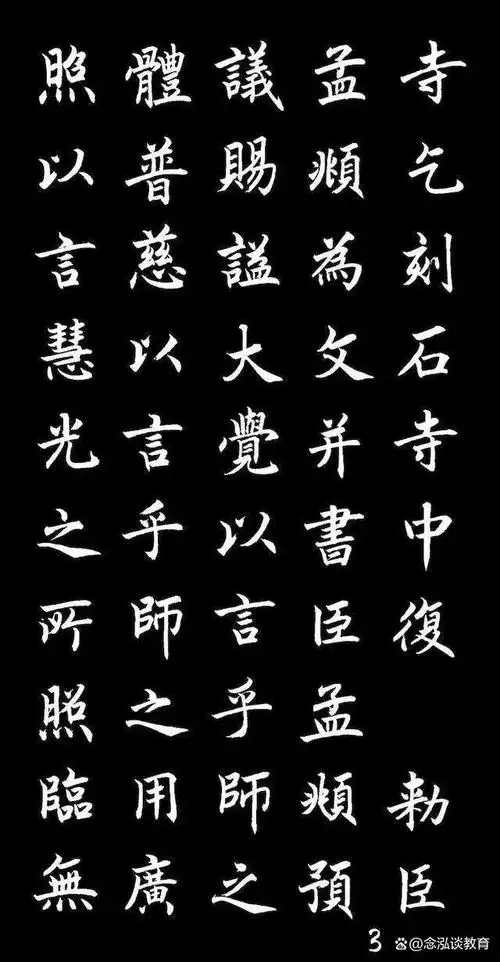 寺乞刻石寺中復 勑臣
孟頫為文并書臣孟頫預
議賜謚大覺以言乎師之
體普慈以言乎師之用廣
照以言慧光之所照臨無
3
念泓谈教育